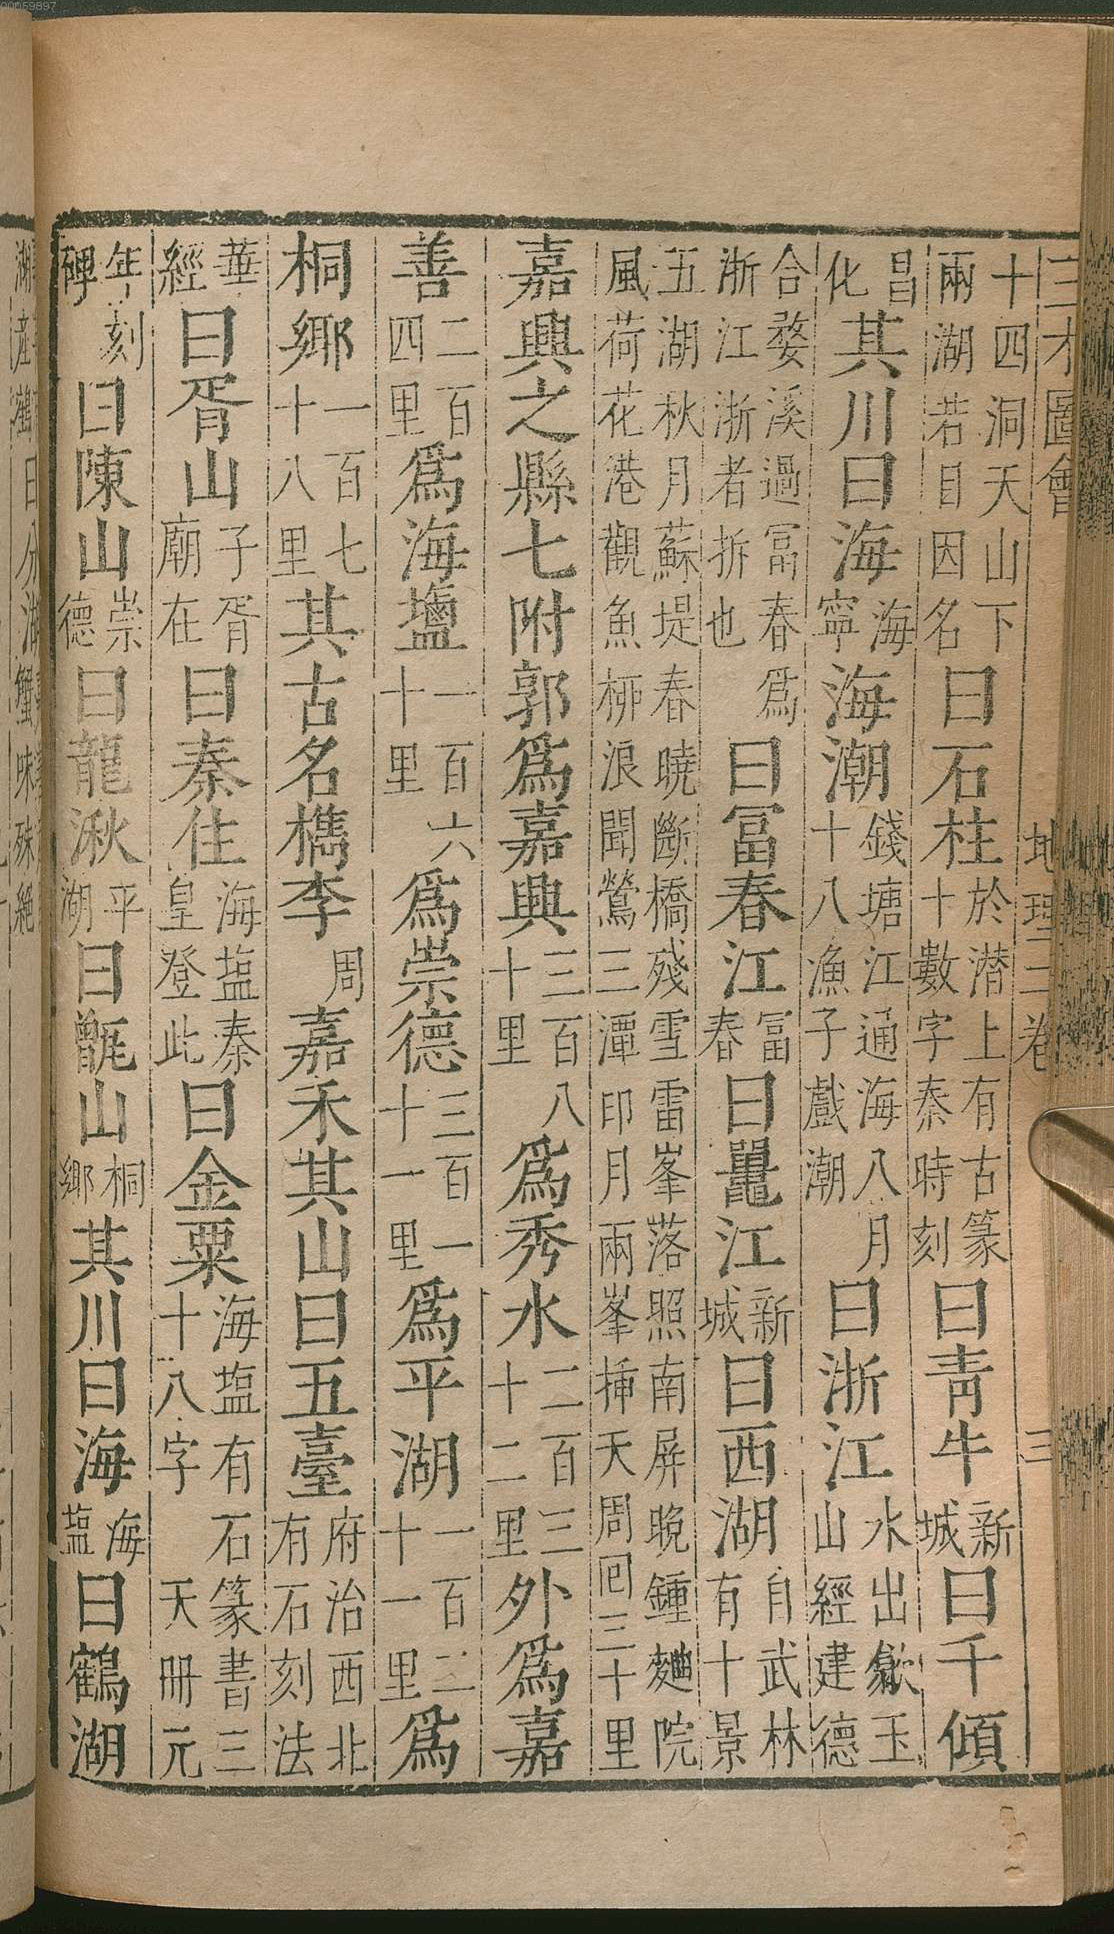 三才圖會 地理三卷 三
十四洞天山下兩湖若目因名曰石柱於潜上有古篆十數字秦時刻曰靑牛新城曰千傾
昌化其川曰海海寧海潮錢塘江通海八月十八漁子戲潮曰浙江水出歙玉山經建德
合婺溪過冨春爲浙江浙者拆也曰冨春江冨春曰鼉江新城曰西湖自武林有十景
五湖秋月蘇堤春曉斷橋殘雪雷峯落照南屏晚鍾麯院風荷花港觀魚柳浪聞鶯三潭印月兩峯揷天周回三十里
嘉興之縣七附郭爲嘉興三百八十里爲秀水二百三十二里外爲嘉
善二百四里爲海鹽一百六十里爲崇德三百一十一里爲平湖一百二十一里爲
桐鄉一百七十八里其古名檇李周嘉禾其山曰五臺府治西北有石刻法
華經曰胥山子胥廟在曰秦住海塩秦皇登此曰金粟海塩有石篆書三十八字天冊元
年刻碑曰陳山崇德曰龍湫平湖曰甑山桐鄉其川曰海海塩曰鶴湖